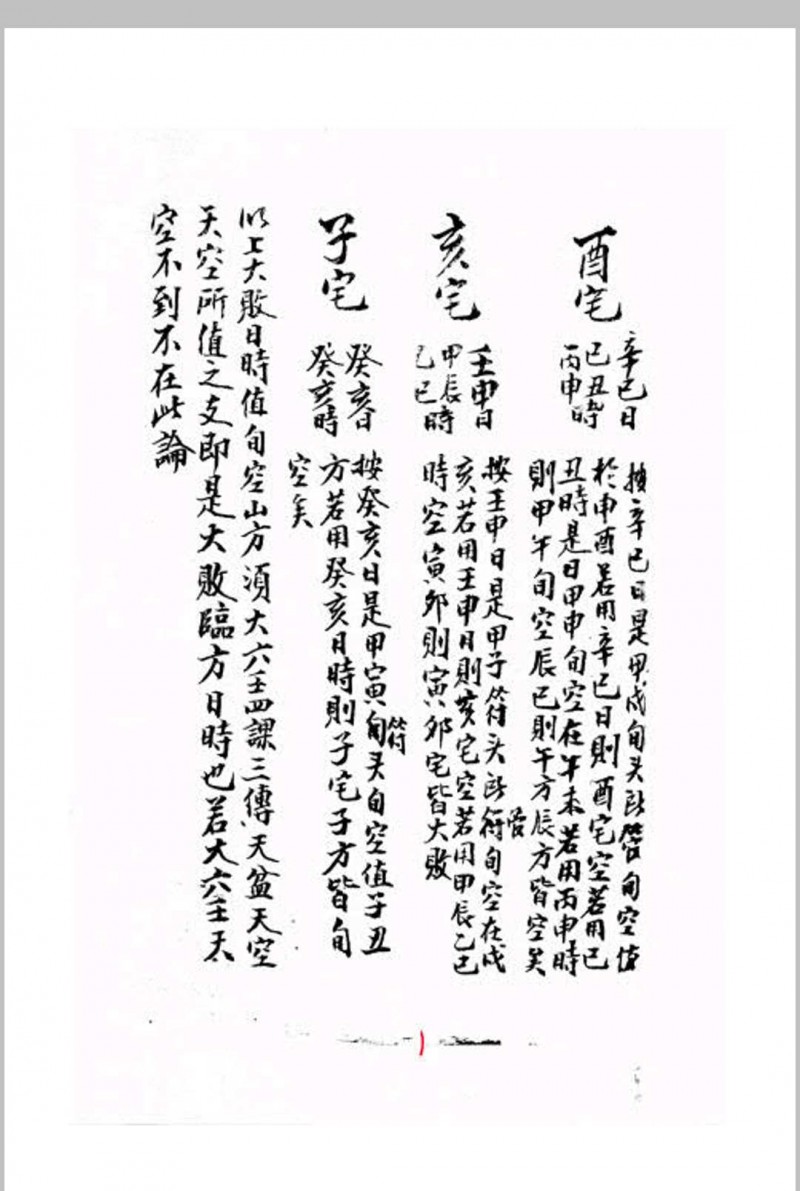 酉宅
辛巳日
己丑時
丙申時
按辛巳日是甲戌旬头所管旬空值
於申酉若用辛巳日則酉宅空若用己
丑時是日甲申旬空在午未若用丙申時
則甲午旬空辰巳則午方辰方皆空矣
亥宅
壬申日
甲辰時
乙巳
按壬申日是甲子符头所符管旬空在戌
亥若用壬申日則亥宅空若用甲辰乙巳
時空寅卯則寅卯宅皆大敗
子宅
癸亥日
癸亥時
按癸亥日是甲寅旬符头旬空值子丑
方若用癸亥日時則子宅子方皆旬
空矣
以上大敗日時值旬空山方須大六壬四課三傳天盆天空
天空所值之支即是大敗臨方日時也若大六壬天
空不到不在此論